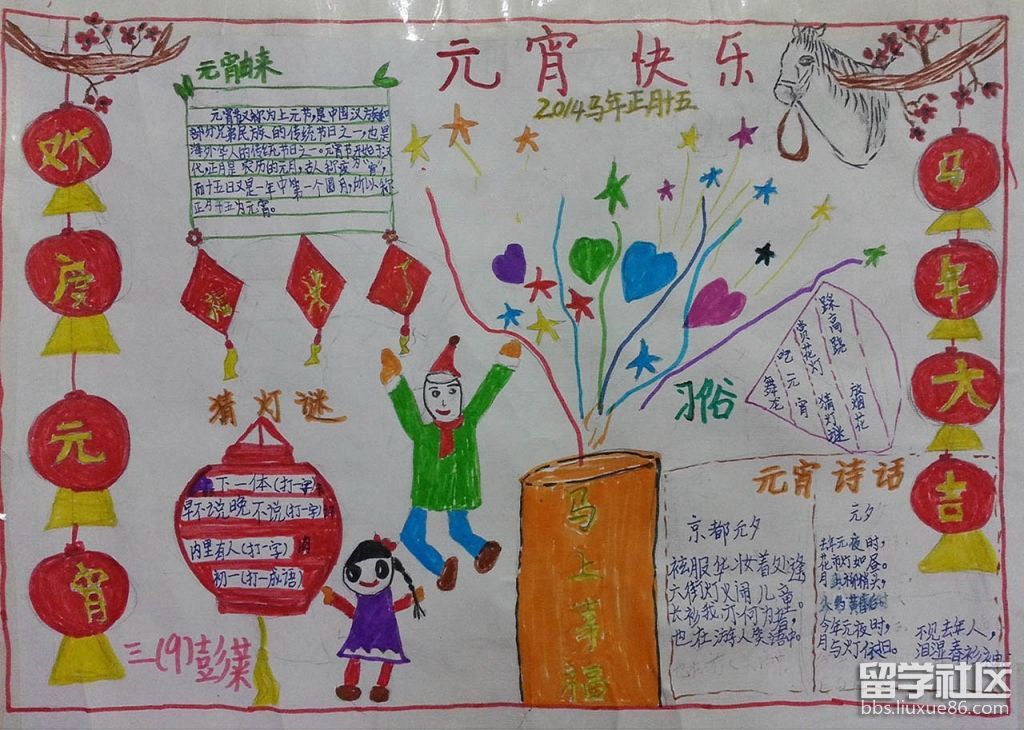 元宵快乐
2014马年正月十五
元宵由来
元宵节又称为上元节,是中国汉族和
部分兄弟民族的传统节日之一,也是
海外华人的传统节日之一。元宵节始于汉
代,正月是农历的元月,古人称夜为“宵”,
而十五日又是一年中第一个圆月,所以称
正月十五为元宵。
欢
度
元
宵
马
年
大
吉
福
来
了
猜灯谜
上下一体(打一字)
早不说晚不说(打一字)
内里有人(打一字)肉
初一(打一成语)
三(9)彭菜
马
上
幸
福
习俗
踩高跷
赏花灯
吃元宵
舞龙
猜灯谜
放烟花
元宵诗话
京都元夕
袨服华妆着处逢
六街灯火闹儿童。
长衫我亦何为者,
也在游人笑语中。
元夕
去年元夜时,
花市灯如昼。
月上柳梢头,
人约黄昏后
今年元夜时,
月与灯依旧。
不见去年人,
泪湿春衫袖
留学社区
bbs.liuxue86.com